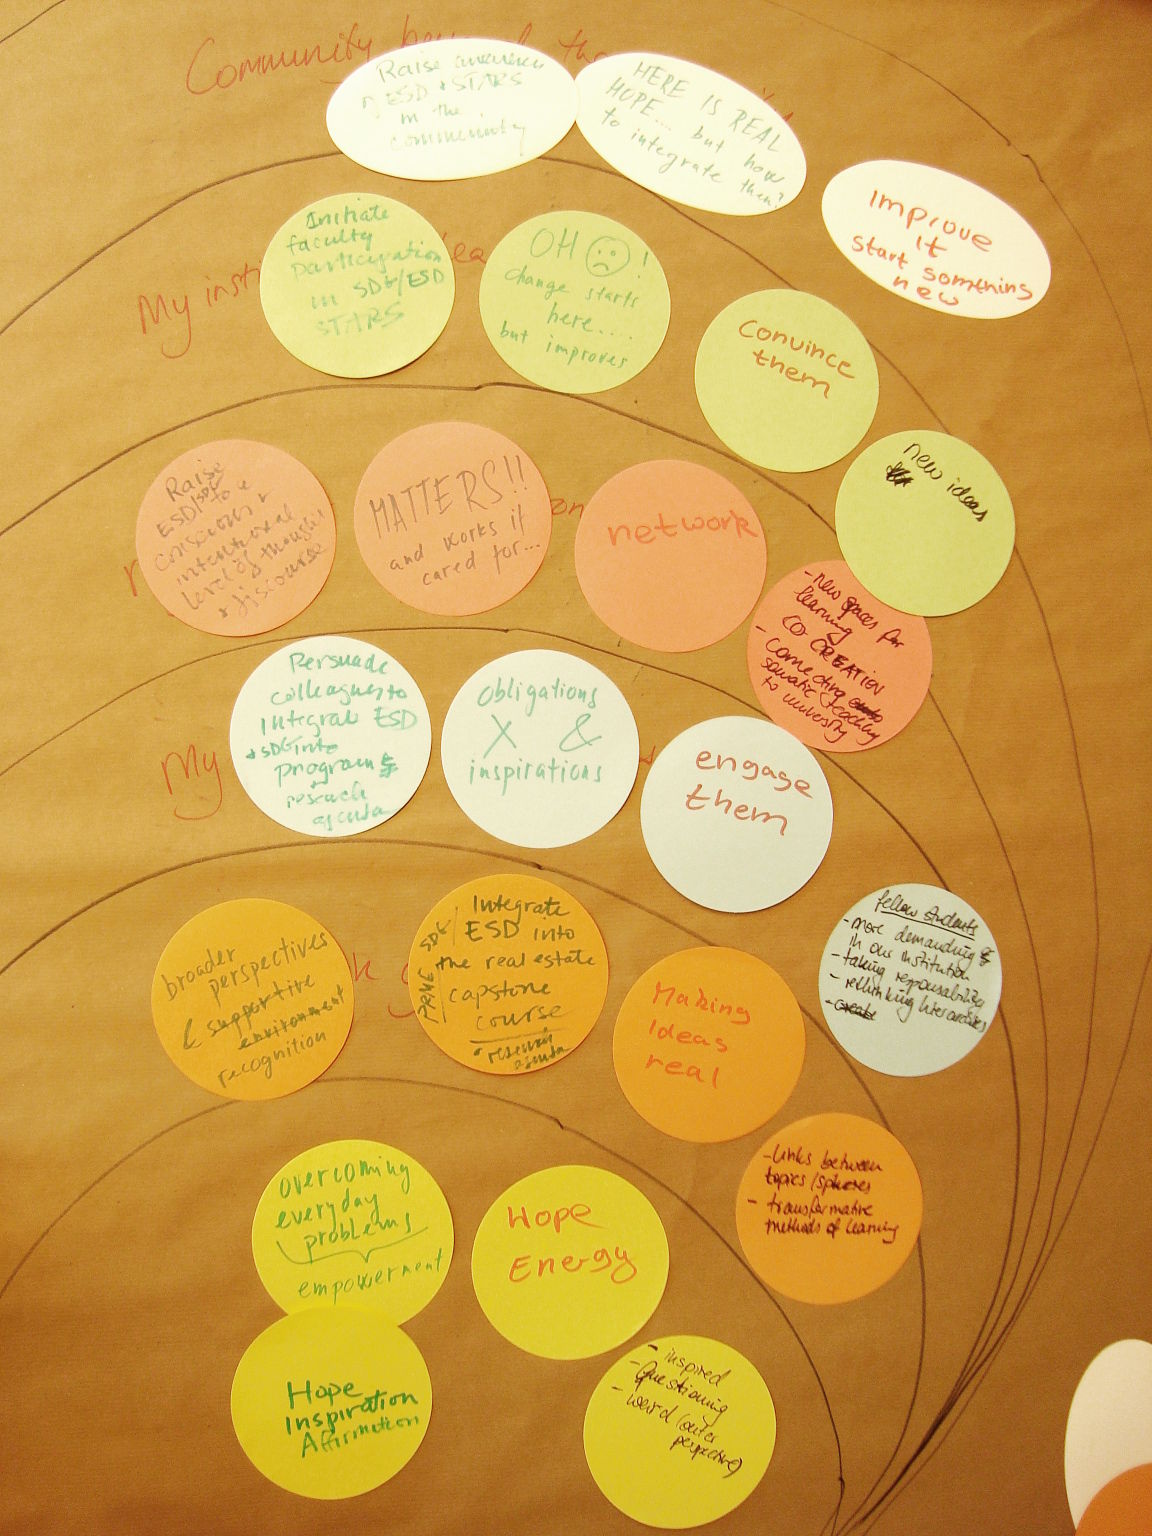 Community beyond
Raise awareness
ESD + STARS
in the
community
HERE IS REAL
HOPE.... but how
to integrate them?
Improve
it
start something
new
My inst
Initiate
faculty
participation
in SDG/ESD
STARS
OH !
change starts
here....
but improves
convince
them
new ideas
Raise
ESD/SDG
to a
conscious +
intentional
level of thought
+ discourse
MATTERS!!
and works if
cared for...
network
- new spaces for
learning
CO CREATION
- Connecting
somatic teaching
to university
My
Persuade
colleagues to
integrate ESD
+ SDG into
programs
+
research
agenda
obligations
X &
inspirations
engage
them
fellow students
- more demanding
in our institution
- taking responsability
- rethinking hierarchies
- create
broader
perspectives
supportive
environment
recognition
PRME SDG/
Integrate
ESD into
the real estate
capstone
course
+ research
agenda
Making
ideas
real
- Links between
topics/spheres
- transformative
methods of learning
overcoming
everyday
problems
empowerment
Hope
Energy
Hope
Inspiration
Affirmation
- inspired
- Questioning
- weird (outer
perspective)